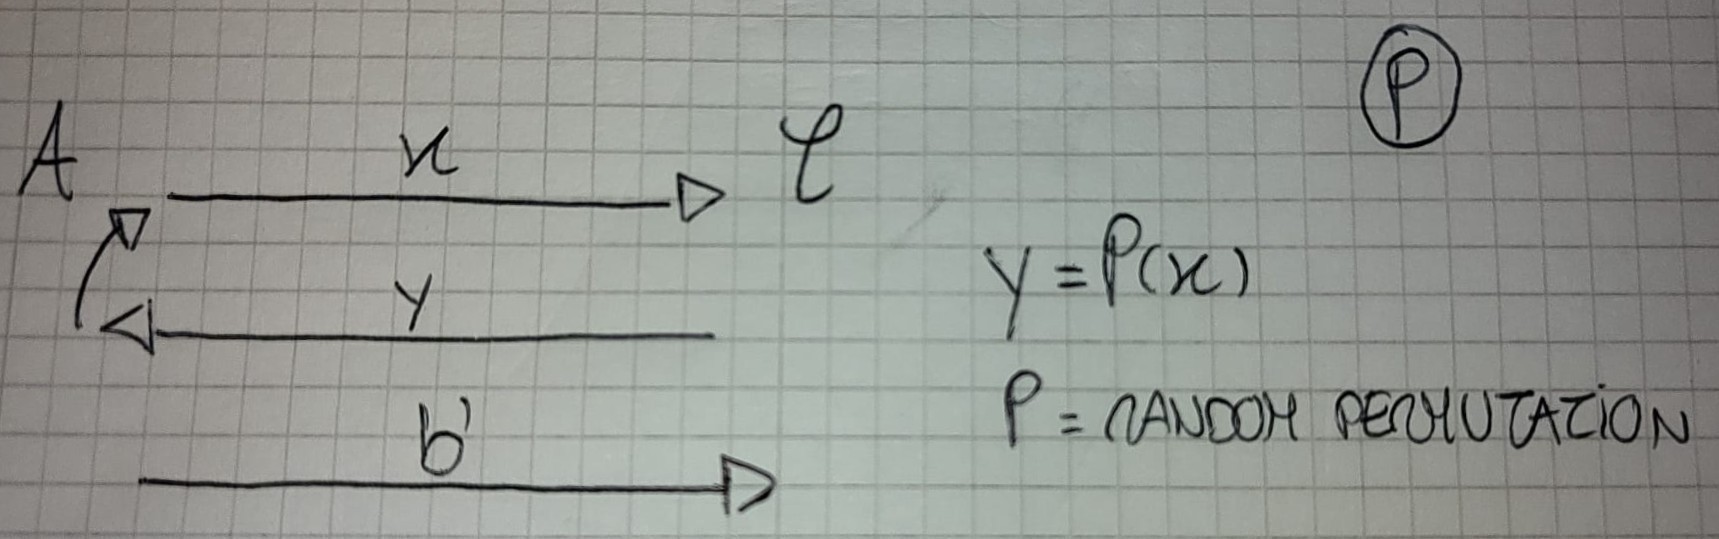 P
A x C
y y = P(x)
P = RANDOM PERMUTATION
b'